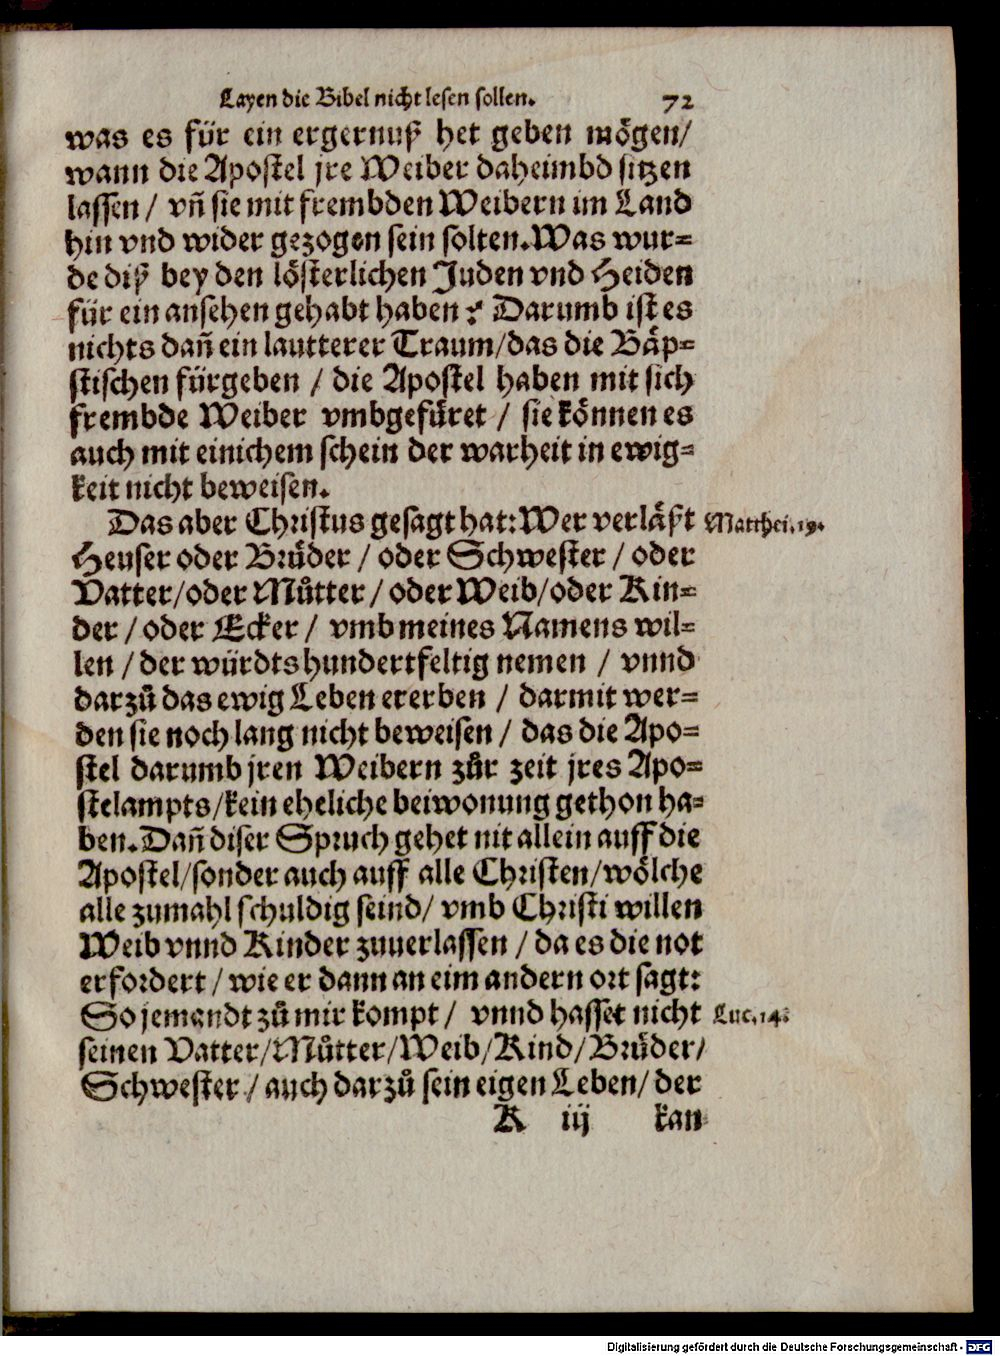 Layen die Bibel nicht lesen sollen. 72
was es für ein ergernuß het geben mögen/
wann die Apostel jre Weiber daheimbd sitzen
lassen / vñ sie mit frembden Weibern im Land
hin vnd wider gezogen sein solten. Was wur=
de diß bey den lösterlichen Juden vnd Heiden
für ein ansehen gehabt haben? Darumb ist es
nichts dañ ein lautterer Traum/das die Bäp=
stischen fürgeben / die Apostel haben mit sich
frembde Weiber vmbgefüret / sie können es
auch mit einichem schein der warheit in ewig=
keit nicht beweisen.
Das aber Christus gesagt hat: Wer verläßt Matthei. 19.
Heuser oder Brüder / oder Schwester / oder
Vatter/oder Můtter / oder Weib/oder Kin=
der / oder Ecker / vmb meines Namens wil=
len / der würdts hundertfeltig nemen / vnnd
darzů das ewig Leben ererben / darmit wer=
den sie noch lang nicht beweisen / das die Apo=
stel darumb jren Weibern zůr zeit jres Apo=
stelampts/kein eheliche beiwonung gethon ha=
ben. Dañ diser Spruch gehet nit allein auff die
Apostel/sonder auch auff alle Christen/wölche
alle zumahl schuldig seind/ vmb Christi willen
Weib vnnd Kinder zuuerlassen / da es die not
erfordert / wie er dann an eim andern ort sagt:
So jemandt zů mir kompt / vnnd hasset nicht Luc. 14.
seinen Vatter/Můtter/Weib/Kind/Brüder/
Schwester / auch darzů sein eigen Leben/ der
K iij kan
Digitalisierung gefördert durch die Deutsche Forschungsgemeinschaft - DFG